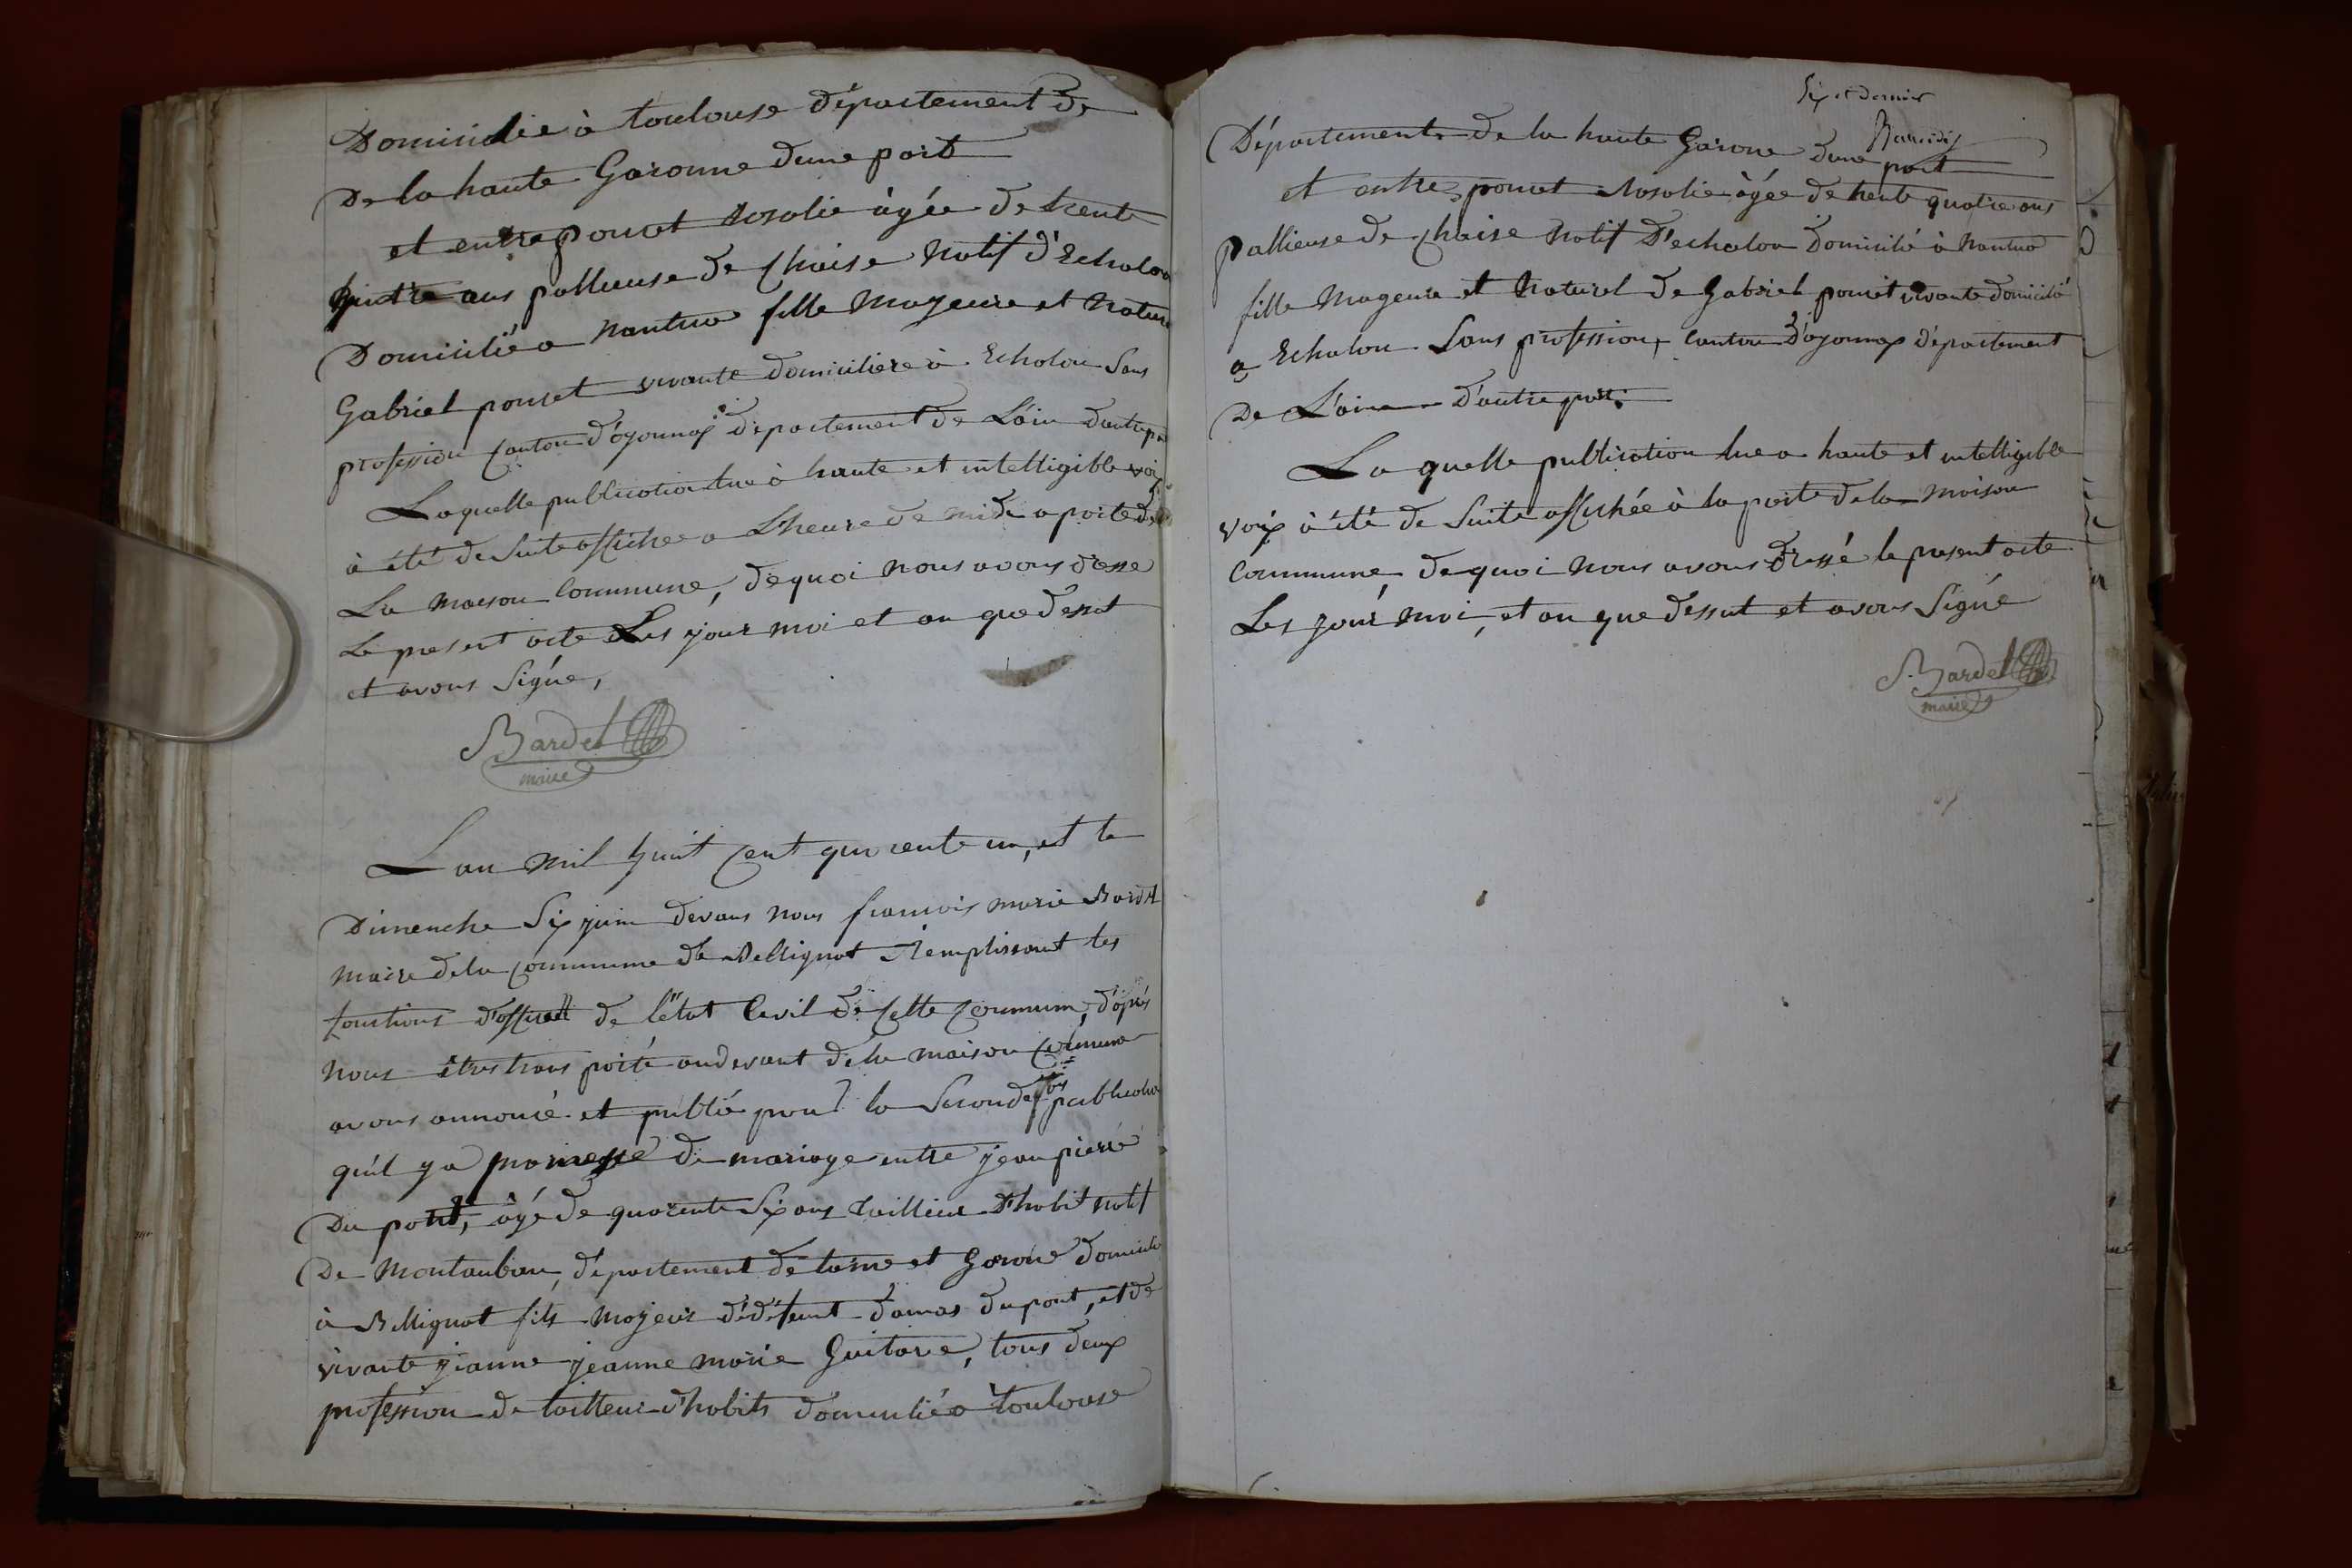 Domicilié à toulouse département de
De la haute Garonne dune part
et entre poncet Rosalie àgée de trente
quatre ans pallieuse de chaise Natif d'Echalon
Domicilié a nantua fille Majeure et Nature
Gabriel poncet vivante domiciliere à Echolon Sans
profession Canton d'oyonnax département de L'ain dautre pa
Laquelle publication lue à haute et intelligible voix
à été de Suite affichee a L'heure de midi a porte de
La maison Commune, de quoi nous avons dressé
Le present acte Les jour moi et an que dessut
et avons Signé,
Bardet
maire
L an mil huit Cent quarente un, et le
Dimenche Six juin devans nous francois marie Bardet
maire dela commune de Bellignat Remplissant les
fonctions d'officier de l'état Civil de Cette Commum, d'après
nous être trans porté audevant de la maison Commune
avons annoncé et publié pour la Seconde fois publication
quil y a promesse de mariage entre jean pierre
Du pont, àgé de quarente Six ans tailleur d'habit natif
De Montauban, département de tarne et Garone domicilié
à Bellignat fils Majeur dédéfunt damas dupont, et de
vivante jeanne jeanne marie Guitare, tous deux
profession de tailleur d'habits domicilié a toulouse
Six et dernier
Département de la haute Garone dune part
et entre poncet Rosalie àgée de trente quatre ans
pallieuse de chaise Natif D'echalon Domicilé à Nantua
fille Mageure et Naturel de Gabriel poncet vivante domicilé
a Echalon Sans profession, Canton d'oyonnax département
De L'ain d'autre part.
La quelle publication lue a haute et intelligible
voix à été de Suite affichée à la porte de la maison
Commune, de quoi nous avons dressé le present acte
Les jour moi, et an que dessut et avons Signé
Bardet
maire